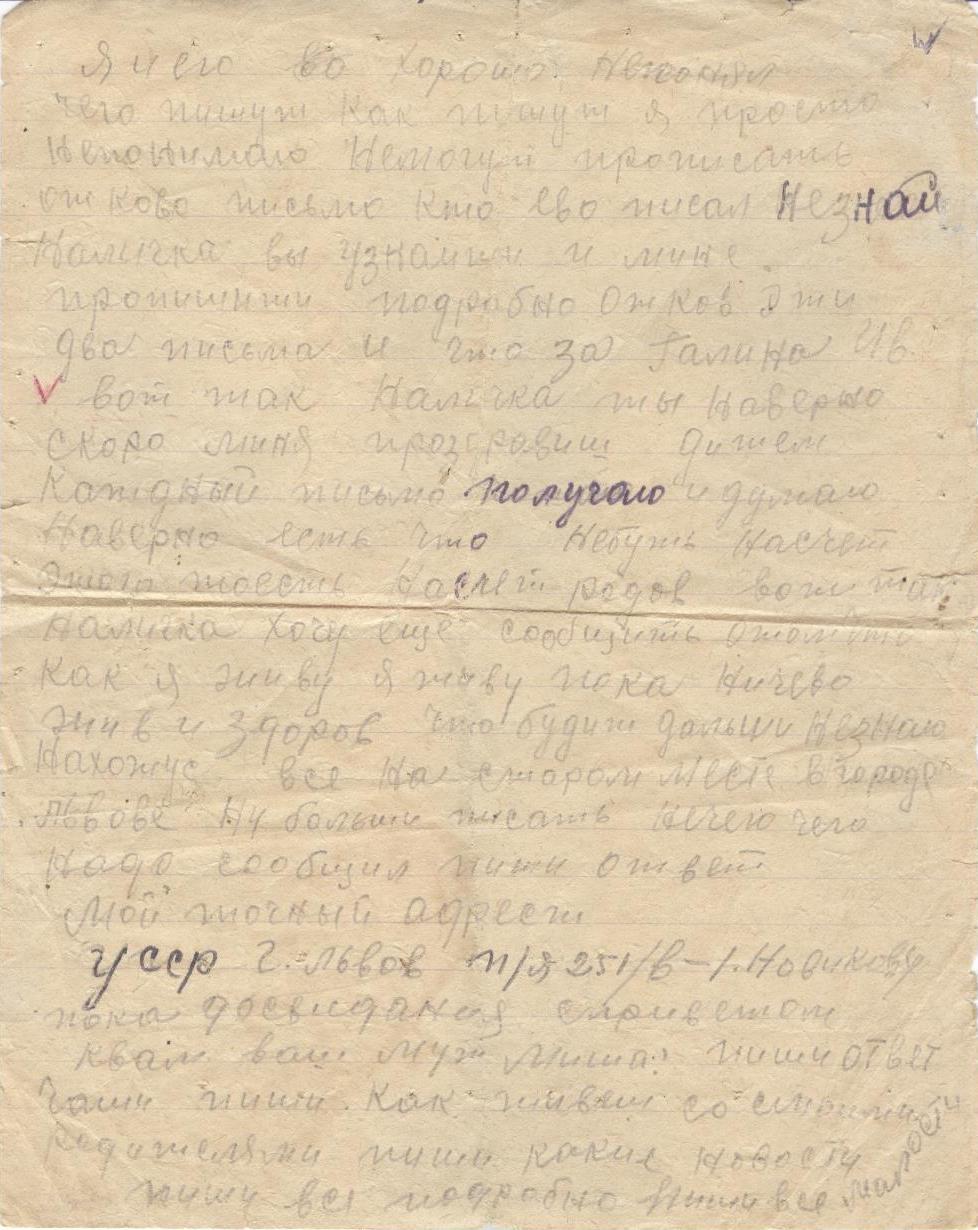 Я и его во хорошо Непонял
чего пишут как пишут я просто
Непонимаю Немогут прописать
отково письмо кто ево писал Незнай
Наличка вы узнайти и мине
пропишити подробно Отков Эти
два письма и что за Галина Ив.
вот так Наличка ты Наверно
скоро миня проздравиш дитем
Каждный письмо получаю и думаю
Наверно есть что Небуть Насчет
этого тоесть Насчет родов вот так
Наличка хочу еще сообщить Отом
Как я живу я живу пока Ничево
жив и здоров что будит дальши Незнаю
Нахожус все На старом месте в городе
Львове Ну больши писать Нечего чего
Надо сообщил пиши ответ
Мой точный адрест
УССР г. Львов п/я 251/в-1. Новикову
пока досвидания сприветом
квам ваш муж Миша. пиши ответ
чащи пиши. Как живеш со своими
родителями пиши какие новости
пиши все подробно пиши все